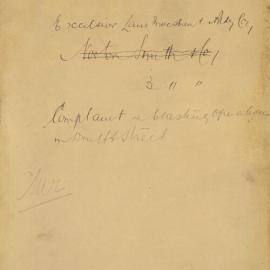 Excelsior Land Investment & Bldg Co,
Norton Smith & Co,
3 " "
Complaint re blasting operations
in Street